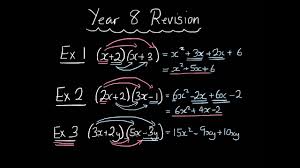 Year 8 Revision
Ex 1 (x+2)(x+3) = x² + 3x + 2x + 6
= x² + 5x + 6
Ex 2 (2x+2)(3x-1) = 6x² - 2x + 6x - 2
= 6x² + 4x - 2
Ex 3 (3x+2y)(5x-3y) = 15x² - 9xy + 10xy